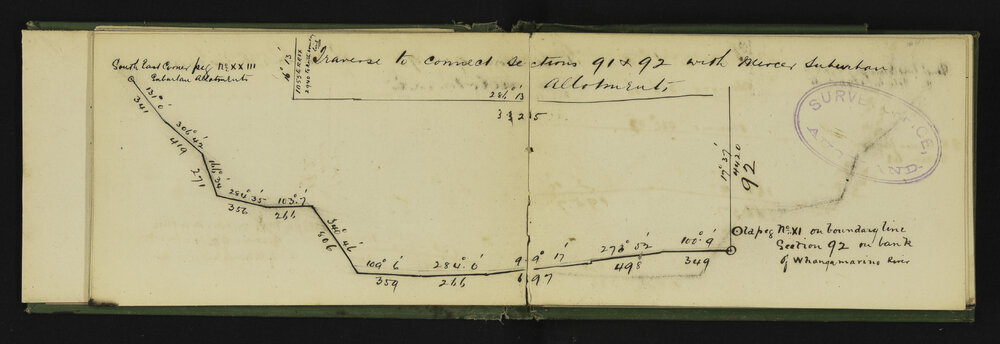 Traverse to connect sections 91 & 92 with Mercer Suburban
Allotments
South East Corner peg No XXIII
Suburban Allotments
16° 13'
286° 13'
3325
131° 0'
341
306° 42'
419
161° 34'
271
284° 35'
356
103° 7'
266
340° 46'
806
109° 6'
359
284° 0'
266
99° 17'
697
273° 52'
498
100° 9'
349
17° 37'
4420
92
Old peg No XI on boundary line
Section 92 on bank
of Whangamarino River
SURVEY OFFICE,
AUCKLAND